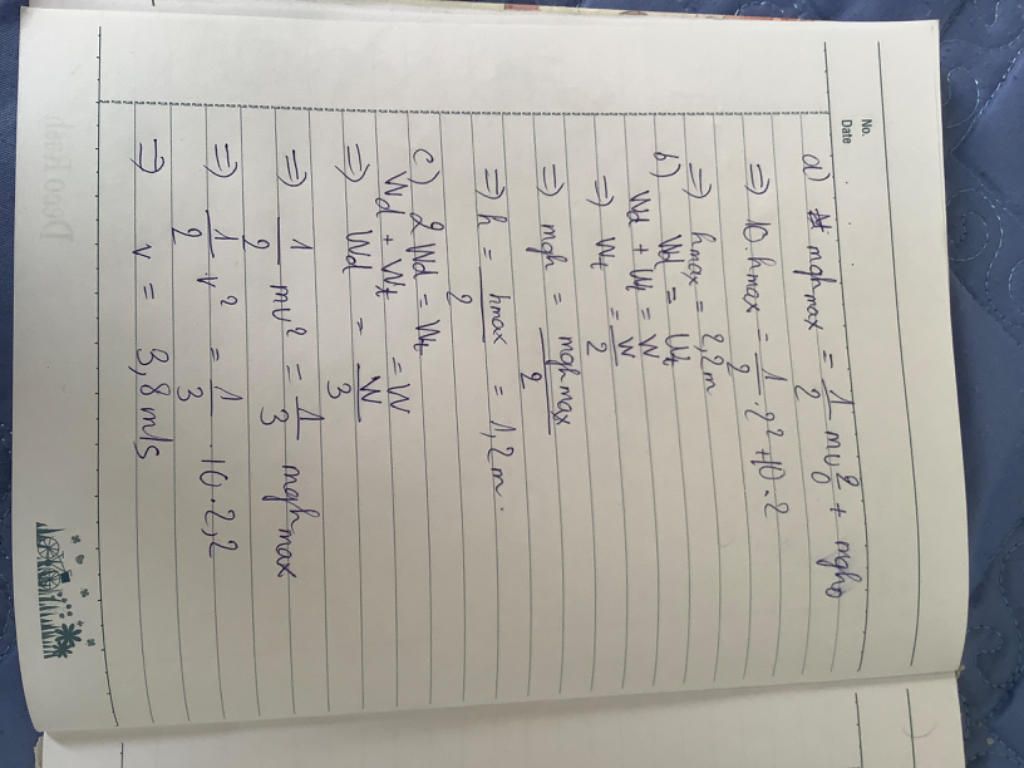 No.
Date
a) mgh max = 1/2 mv₀² + mgh₀
=) 10. h max = 1/2 . 2² + 10 . 2
=) h max = 2,2 m
b) Wd = Wt
Wd + Wt = W
=) Wt = W/2
=) mgh = mgh max/2
=) h = h max/2 = 1,2 m .
c) 2 Wd = Wt
Wd + Wt = W
=) Wd = W/3
=) 1/2 mv² = 1/3 mgh max
=) 1/2 v² = 1/3 . 10 . 2,2
=) v = 3,8 m/s